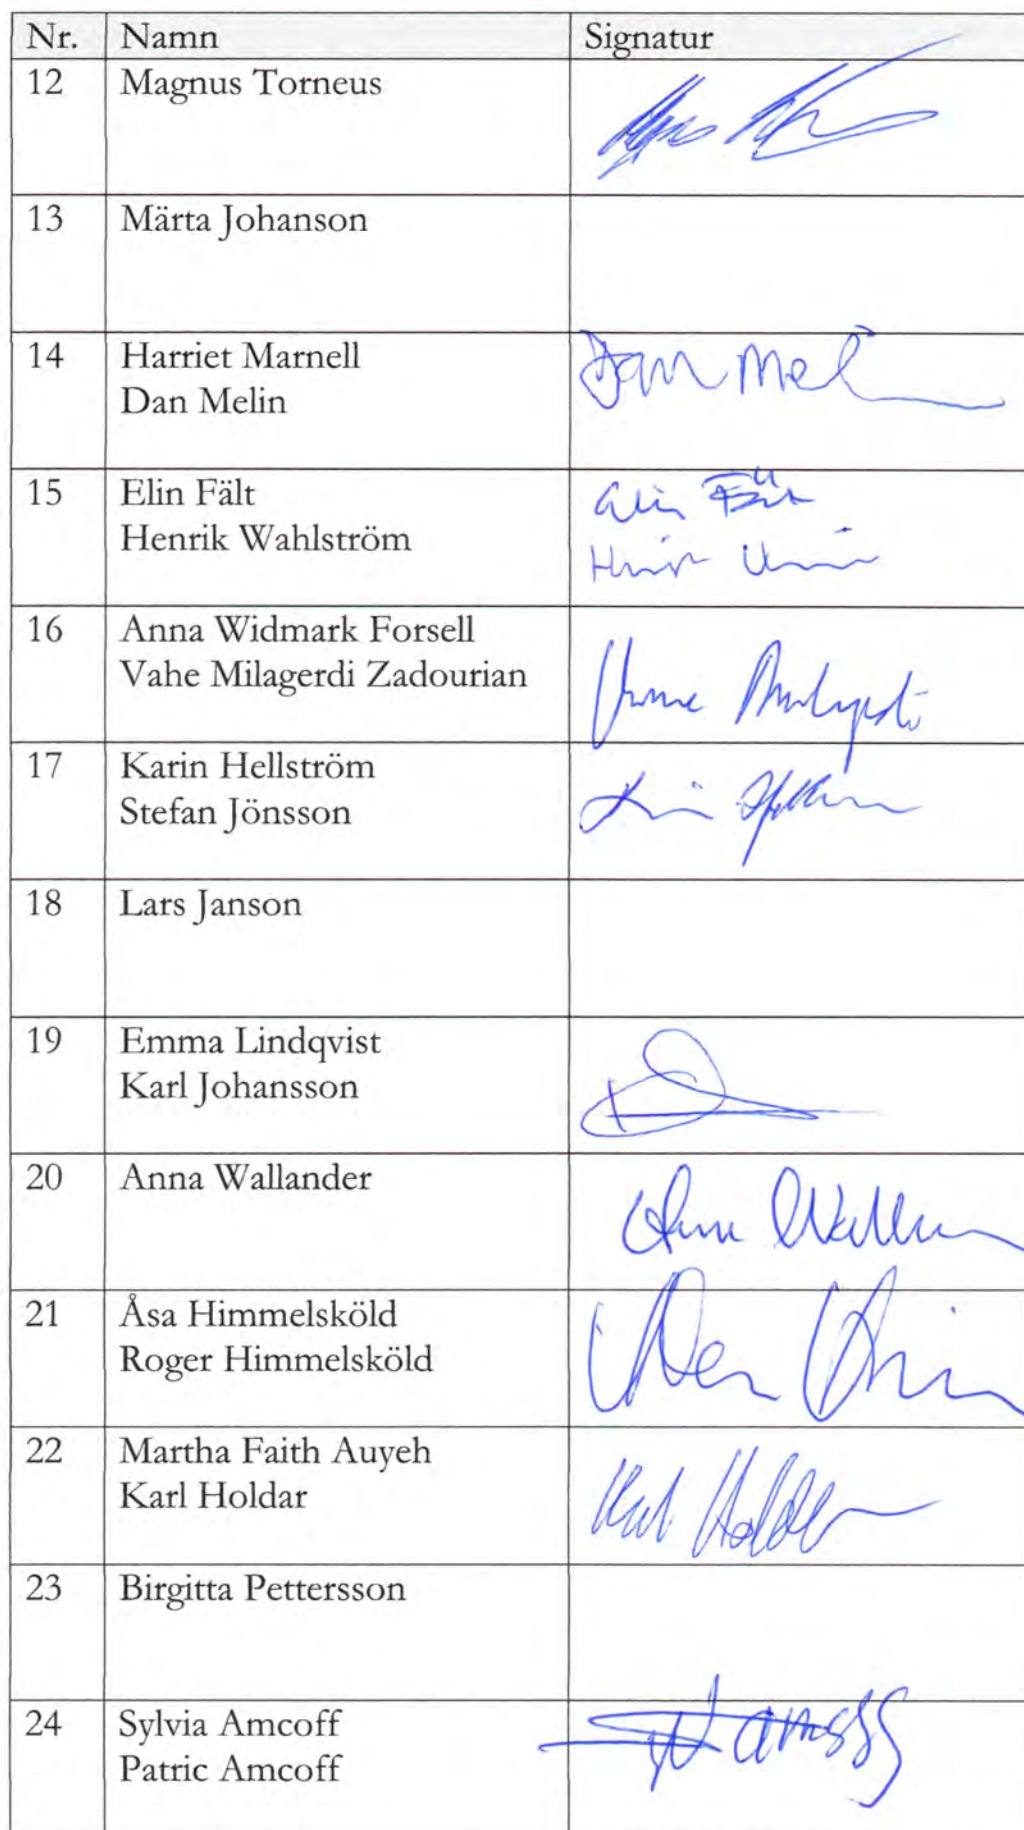 Nr. Namn Signatur
12 Magnus Torneus
13 Märta Johanson
14 Harriet Marnell Dan Mel
Dan Melin
15 Elin Fält Elin Fält
Henrik Wahlström
16 Anna Widmark Forsell
Vahe Milagerdi Zadourian
17 Karin Hellström
Stefan Jönsson
18 Lars Janson
19 Emma Lindqvist
Karl Johansson
20 Anna Wallander
21 Åsa Himmelsköld
Roger Himmelsköld
22 Martha Faith Auyeh
Karl Holdar
23 Birgitta Pettersson
24 Sylvia Amcoff
Patric Amcoff